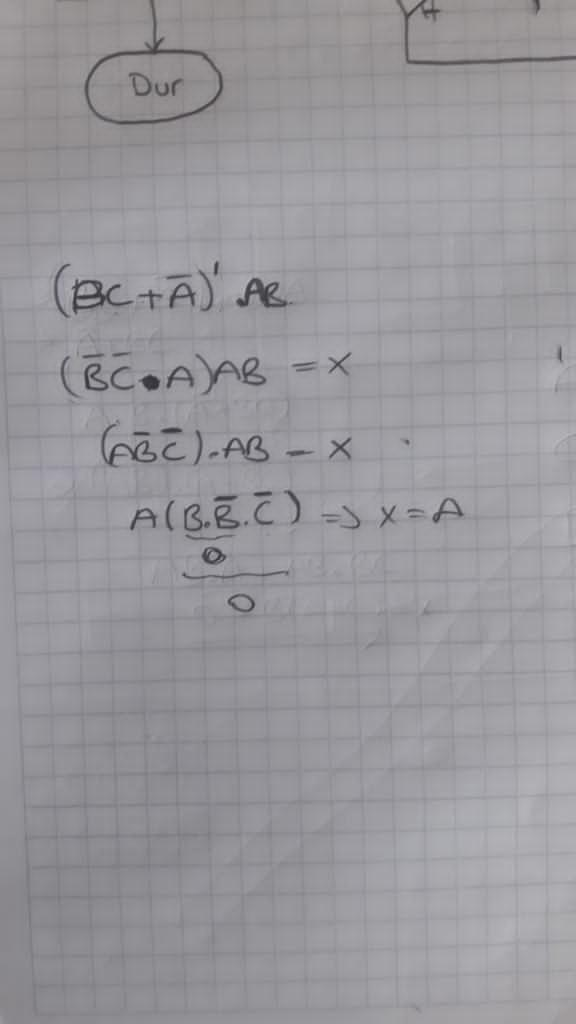 Dur
(BC + A̅)' AB
(B̅ C̅ • A) AB = X
(A B̅ C̅) . AB - X
A (B . B̅ . C̅) => X = A
0
0